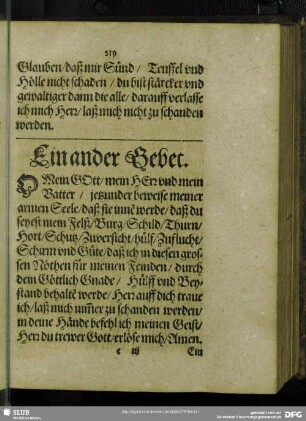 219
Glauben/ daß mir Sünd/ Teuffel vnd
Hölle nicht schaden/ du bist stärcker vnd
gewaltiger dann die alle/ darauff verlasse
ich mich Herr/ laß mich nicht zu schanden
werden.
Ein ander Gebet.
O Mein GOtt/ mein HErr vnd mein
Vatter/ jetzunder beweise meiner
armen Seele/ daß sie innē werde/ daß du
seyest mein Felß/ Burg/ Schild/ Thurn/
Hort/ Schutz/ Zuversicht/ hülf/ Zuflucht/
Schirm vnd Güte/ daß ich in diesen gros-
sen Nöthen für meinen Feinden/ durch
dein Göttlich Gnade/ Hülff vnd Bey-
stand behaltē werde/ Herr auff dich traue
ich/ laß mich nim̄er zu schanden werden/
in deine Hände befehl ich meinen Geist/
Herr du trewer Gott/ erlöse mich/ Amen.
e iij Ein
SLUB
DFG